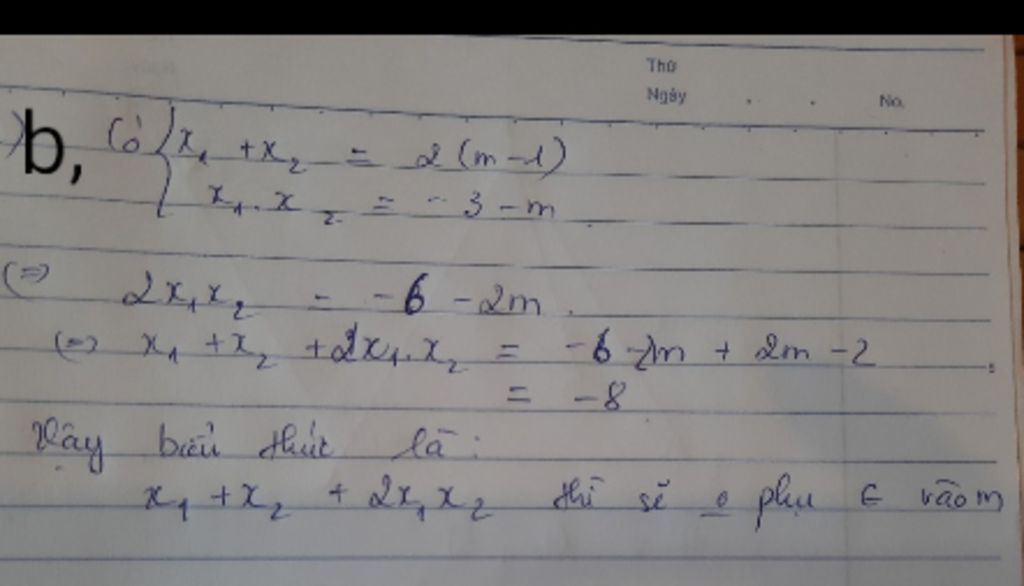 Thứ
Ngày . . No.
b, Có { x₁ + x₂ = 2(m-1)
x₁. x₂ = -3-m
(=) 2x₁x₂ = -6-2m.
(=) x₁ + x₂ + 2x₁.x₂ = -6-2m + 2m-2
= -8
Vậy biểu thức là:
x₁ + x₂ + 2x₁x₂ thì sẽ o phụ ∈ vào m